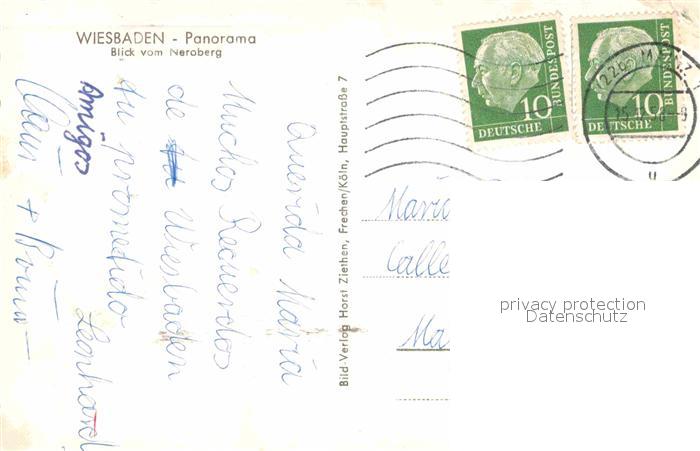 WIESBADEN - Panorama
Blick vom Neroberg
Querida Maria
Muchos Recuerdos
de Wiesbaden
tu prometido
Leonhard
Amigos
Klaus +
Bild-Verlag Horst Ziethen, Frechen/Köln, Hauptstraße 7
10
DEUTSCHE
BUNDESPOST
10
DEUTSCHE
BUNDESPOST
(22b) MAINZ
Maria
Calle
Ma
privacy protection
Datenschutz